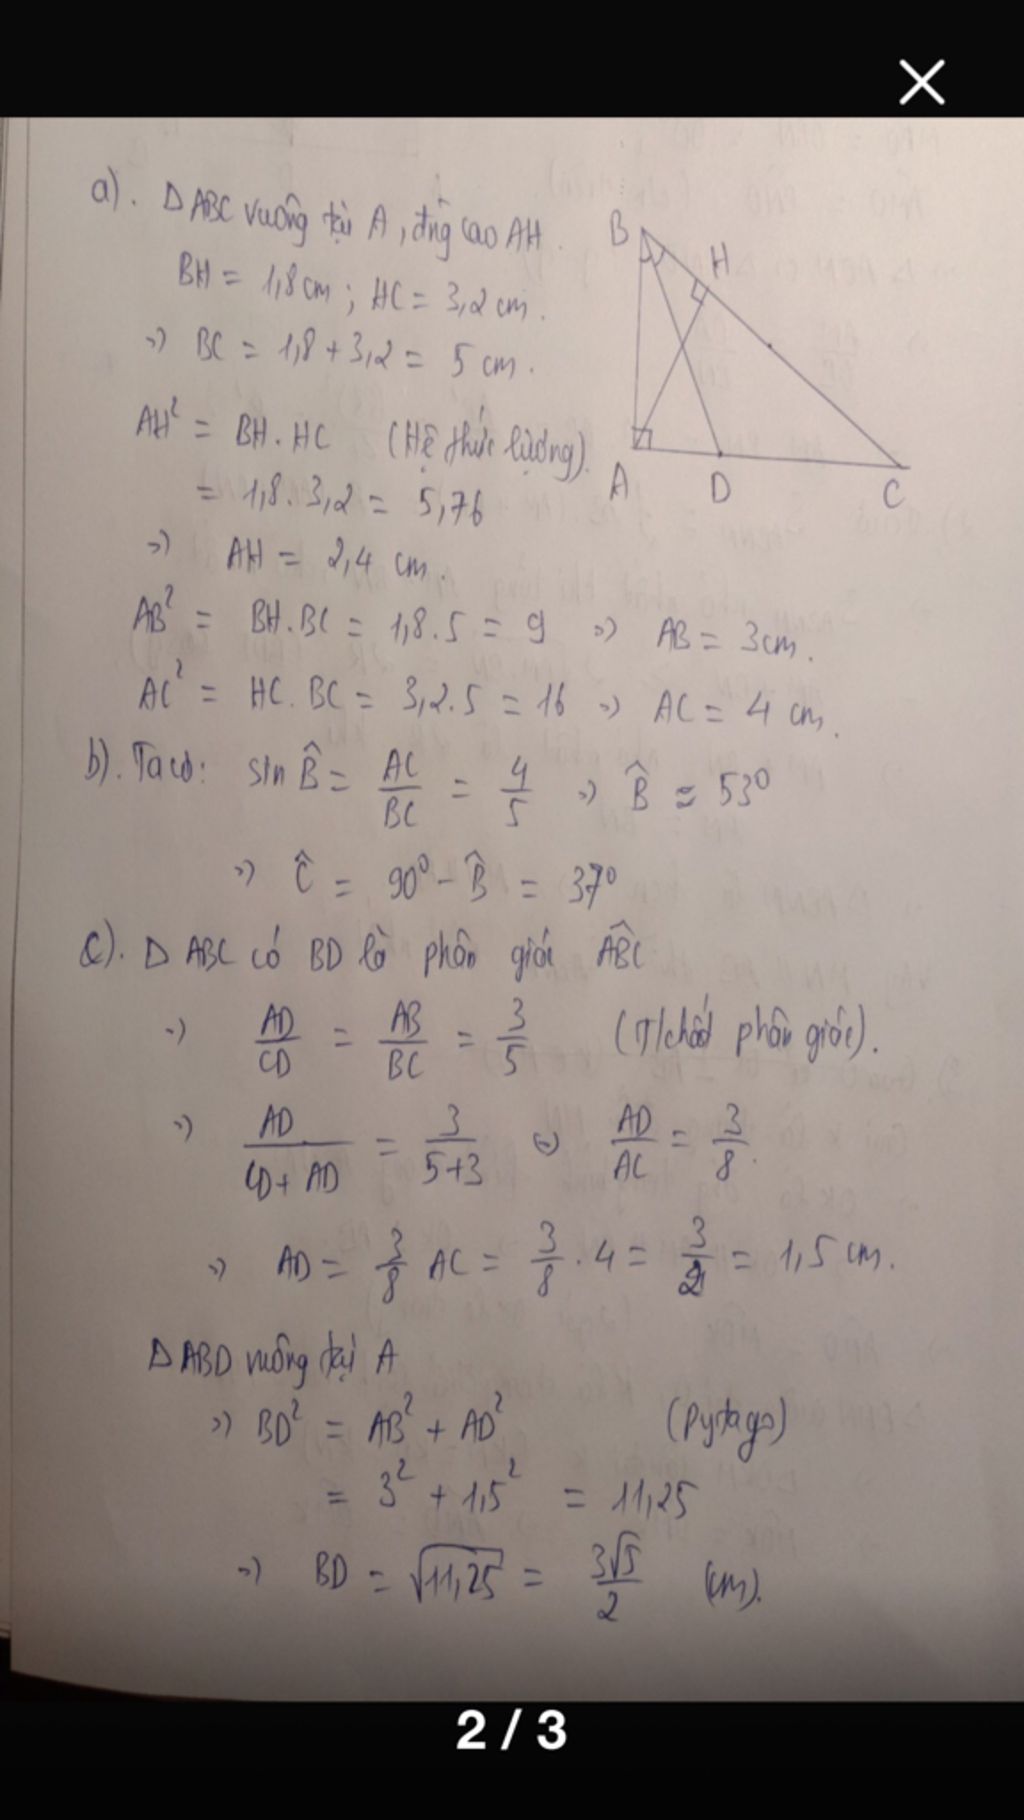 a). ΔABC vuông tại A, đng cao AH.
BH = 1,8cm; HC = 3,2 cm.
=> BC = 1,8 + 3,2 = 5 cm.
AH² = BH. HC (Hệ thức lượng).
= 1,8. 3,2 = 5,76
=> AH = 2,4 cm.
AB² = BH.BC = 1,8.5 = 9 => AB = 3cm.
AC² = HC. BC = 3,2.5 = 16 => AC = 4 cm.
b). Ta có: sin B̂ = AC/BC = 4/5 => B̂ ≈ 53⁰
=> Ĉ = 90⁰ - B̂ = 37⁰
c). Δ ABC có BD là phân giác ABC
=> AD/CD = AB/BC = 3/5 (T/chất phân giác).
=> AD/(CD + AD) = 3/(5+3) <=> AD/AC = 3/8.
=> AD = 3/8 AC = 3/8 . 4 = 3/2 = 1,5 cm.
Δ ABD vuông tại A
=> BD² = AB² + AD² (Pytago)
= 3² + 1,5² = 11,25
=> BD = √11,25 = 3√5/2 (cm).
B
H
A
D
C
2 / 3